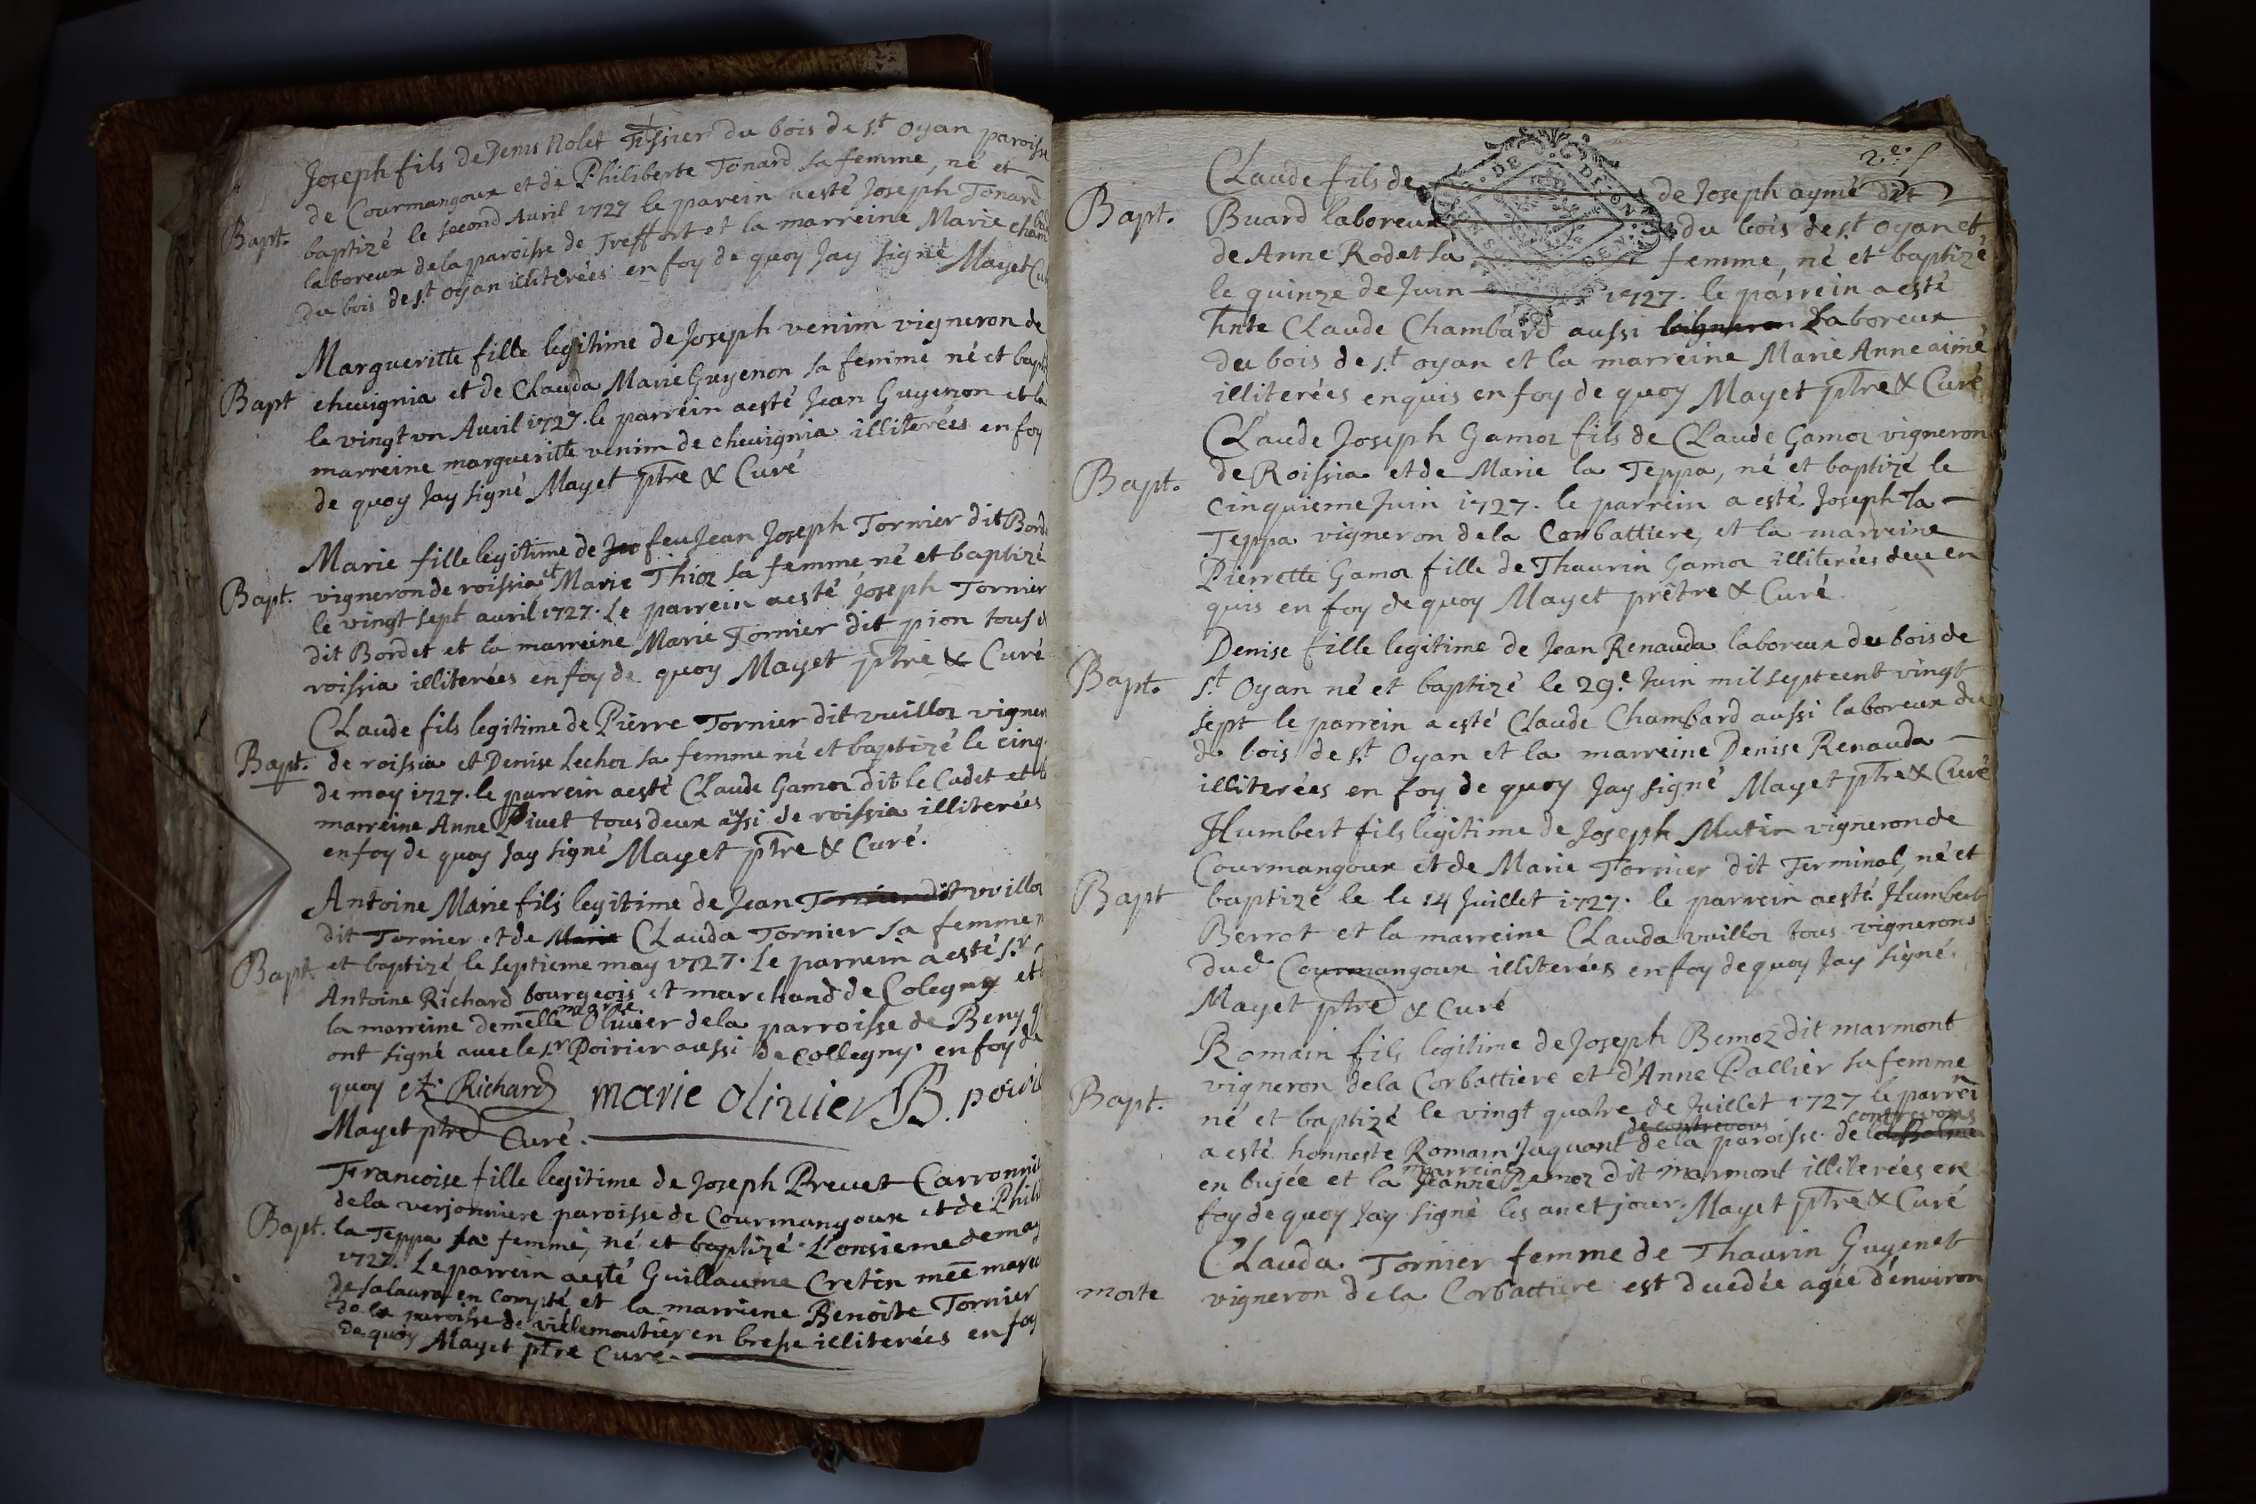 Joseph fils de Denis Rolet Tissier du bois de s.t Oyan paroisse
de Courmangoux et de Philiberte Tonard sa femme, né et
Bapt. baptizé le second Auril 1727 le parein aesté Joseph Tonard
laboreux dela paroisse de Treffort et la marreine Marie cham
du bois de s.t oyan illiterées en foy de quoy Jay signé Mayet Cu
Margueritte fille legitime de Joseph venim vigneron de
Bapt cheuignia et de Clauda Marie Guyenon sa femme né et bapt
le vingt vn Auuil 1727. le parrein aesté Jean Guyenon et la
marreine margueritte venim de cheuignia illiterées en foy
de quoy Jay signé Mayet ptre & Curé
Marie fille legitime de feu Jean Joseph Tornier dit Bord
Bapt. vigneron de roissia et Marie Thioz sa femme né et baptizé
le vingt sept auril 1727. Le parrein aesté Joseph Tornier
dit Bordet et la marreine Marie Tornier dit pion tous d
roissia illiterées en foy de quoy Mayet ptre & Curé
Claude fils legitime de Pierre Tornier dit vuilloz vigner
Bapt. de roissia et Denise Lechoz sa femme né et baptizé le cinq.
de may 1727. le parrein aesté Claude Gamoz dit le Cadet et la
marreine Anne Piuet tous deux aussi de roissia illiterées
en foy de quoy Jay signé Mayet ptre & Curé.
Antoine Marie fils legitime de Jean Tornier dit vuilloz
dit Tornier et de Marie Clauda Tornier sa femme n
Bapt. et baptizé le septieme may 1727. Le parrein aesté s.r
Antoine Richard bourgeois et marchand de Colegny et
la marreine demelle marie Oliuier dela parroisse de Beny q
ont signé auec le sr Poirier aussi de Collegny. en foy de
quoy Richard marie oliuier B. poirie
Mayet ptre Curé.
Francoise fille legitime de Joseph Preuet Carronnie
dela verjonniere paroisse de Courmangoux et de Phili
Bapt. la Teppa sa femme, né et baptizé L'onsieme de may
1727. Le parrein aesté Guillaume Cretin
de salaura en compté et la marriene Benoite Tornier
de la paroisse de vielemoutier en bresse illiterées en foy
de quoy Mayet ptre Curé.
2.e f
Claude fils de de Joseph aymé dit
Bapt. Buard laboreux du bois de s.t oyan et
de Anne Rodet sa femme, né et baptizé
le quinze de Juin 1727. le parrein aesté
Claude Chambard aussi Laboreux
du bois de s.t oyan et la marreine Marie Anne aimé
illiterées enquis en foy de quoy Mayet ptre & Curé
Claude Joseph Gamoz fils de Claude Gamoz vigneron
Bapt. de Roissia et de Marie la Teppa, né et baptizé le
cinquieme Juin 1727. le parrein a esté Joseph la
Teppa vigneron dela Corbattiere, et la marreine
Pierrette Gamoz fille de Thaurin Gamoz illiterées deu en
quis en foy de quoy Mayet prêtre & Curé.
Denise fille legitime de Jean Renauda laboreux du bois de
Bapt. s.t Oyan né et baptizé le 29.e Juin mil sept cent vingt
sept le parrein a esté Claude Chambard aussi laboreux du
de bois de s.t Oyan et la marreine Denise Renauda
illiterées en foy de quoy Jay signé Mayet ptre & Curé
Humbert fils legitime de Joseph Mutin vigneron de
Courmangoux et de Marie Tornier dit Terminal, né et
Bapt baptizé le le 14 Juillet 1727. le parrein aesté Humbert
Berrot et la marreine Clauda vuilloz tous vignerons
dud. Courmangoux illiterées en foy de quoy Jay signé.
Mayet ptre & Curé
Romain fils legitime de Joseph Bemoz dit marmont
vigneron dela Corbattiere et d'Anne Pallier sa femme
Bapt. né et baptizé le vingt quatre de Juillet 1727 le parrein
de contrevous contrevous
a esté honneste Romain Juquant de la paroisse de la Balme
en bujée et la marreine Jeanne Bemoz dit marmont illiterées en
foy de quoy Jay signé les an et jour. Mayet ptre & Curé
Clauda Tornier femme de Thaurin Guyenet
morte vigneron de la Corbattiere est duedée agée d'enuiron